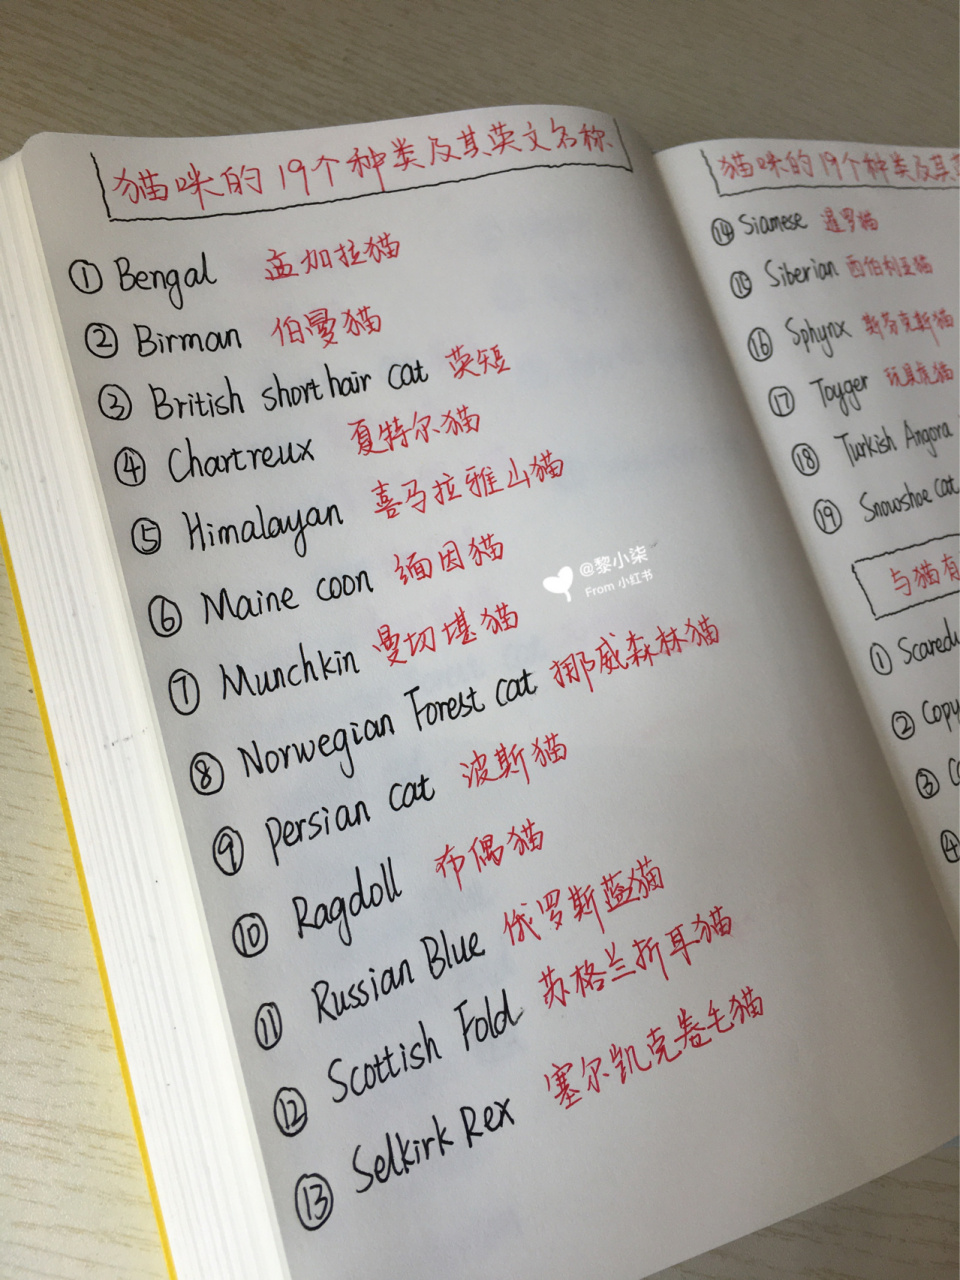 猫咪的19个种类及其英文名称
① Bengal 孟加拉猫
② Birman 伯曼猫
③ British shorthair cat 英短
④ Chartreux 夏特尔猫
⑤ Himalayan 喜马拉雅山猫
⑥ Maine coon 缅因猫
⑦ Munchkin 曼切堪猫
⑧ Norwegian Forest cat 挪威森林猫
⑨ Persian cat 波斯猫
⑩ Ragdoll 布偶猫
⑪ Russian Blue 俄罗斯蓝猫
⑫ Scottish Fold 苏格兰折耳猫
⑬ Selkirk Rex 塞尔凯克卷毛猫
@黎小柒
From 小红书
猫咪的19个种类及其
⑭ Siamese 暹罗猫
⑮ Siberian 西伯利亚猫
⑯ Sphynx 斯芬克斯猫
⑰ Toyger 玩具虎猫
⑱ Turkish Angora
⑲ Snowshoe cat
与猫有
① Scaredy
② Copy
③
④